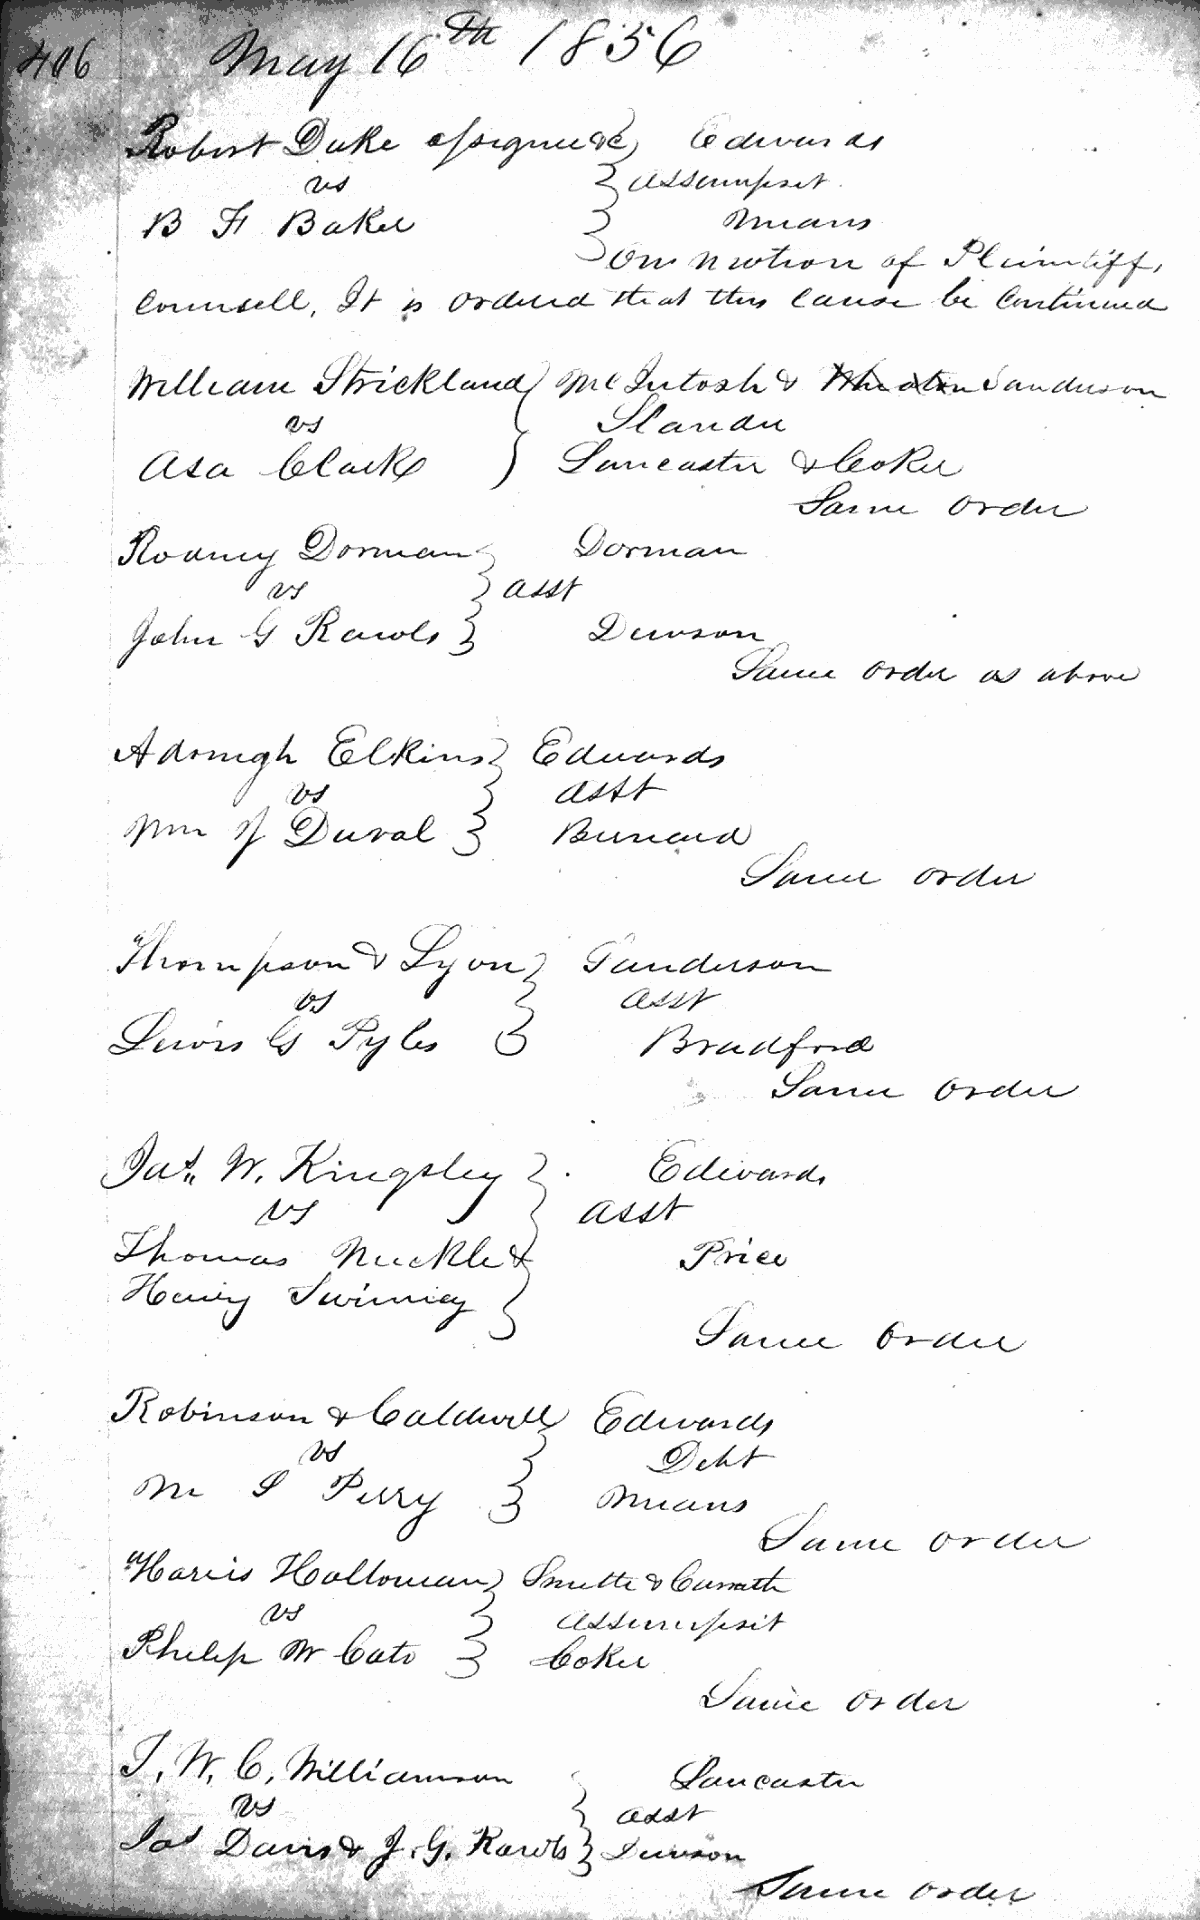 406 May 16th 1856
Robert Duke assignee &c Edwards
vs assumpsit
B F Baker Means
On motion of Plaintiff,
counsell, It is ordered that this cause be continued
William Strickland McIntosh & Sanderson
vs Slander
Asa Clark Lancaster & Coker
Same order
Rodney Dorman Dorman
vs asst
John G Rawls Dewson
Same order as above
Adonigh Elkins Edwards
vs asst
Wm J Duval Bernard
Same order
Thompson & Lyon Sanderson
vs asst
Lewis G Pyles Bradford
Same order
Jas. W. Kingsley Edwards
vs asst
Thomas Nuckle & Price
Henry Swinney
Same order
Robinson & Caldwell Edwards
vs Debt
M S Perry Means
Same order
Harris Holloman Smith &
vs assumpsit
Philip W Cato Coker
Same order
J. W. C. Williamson Lancaster
vs asst
Jas Davis & J. G. Rawls Dewson
Same order